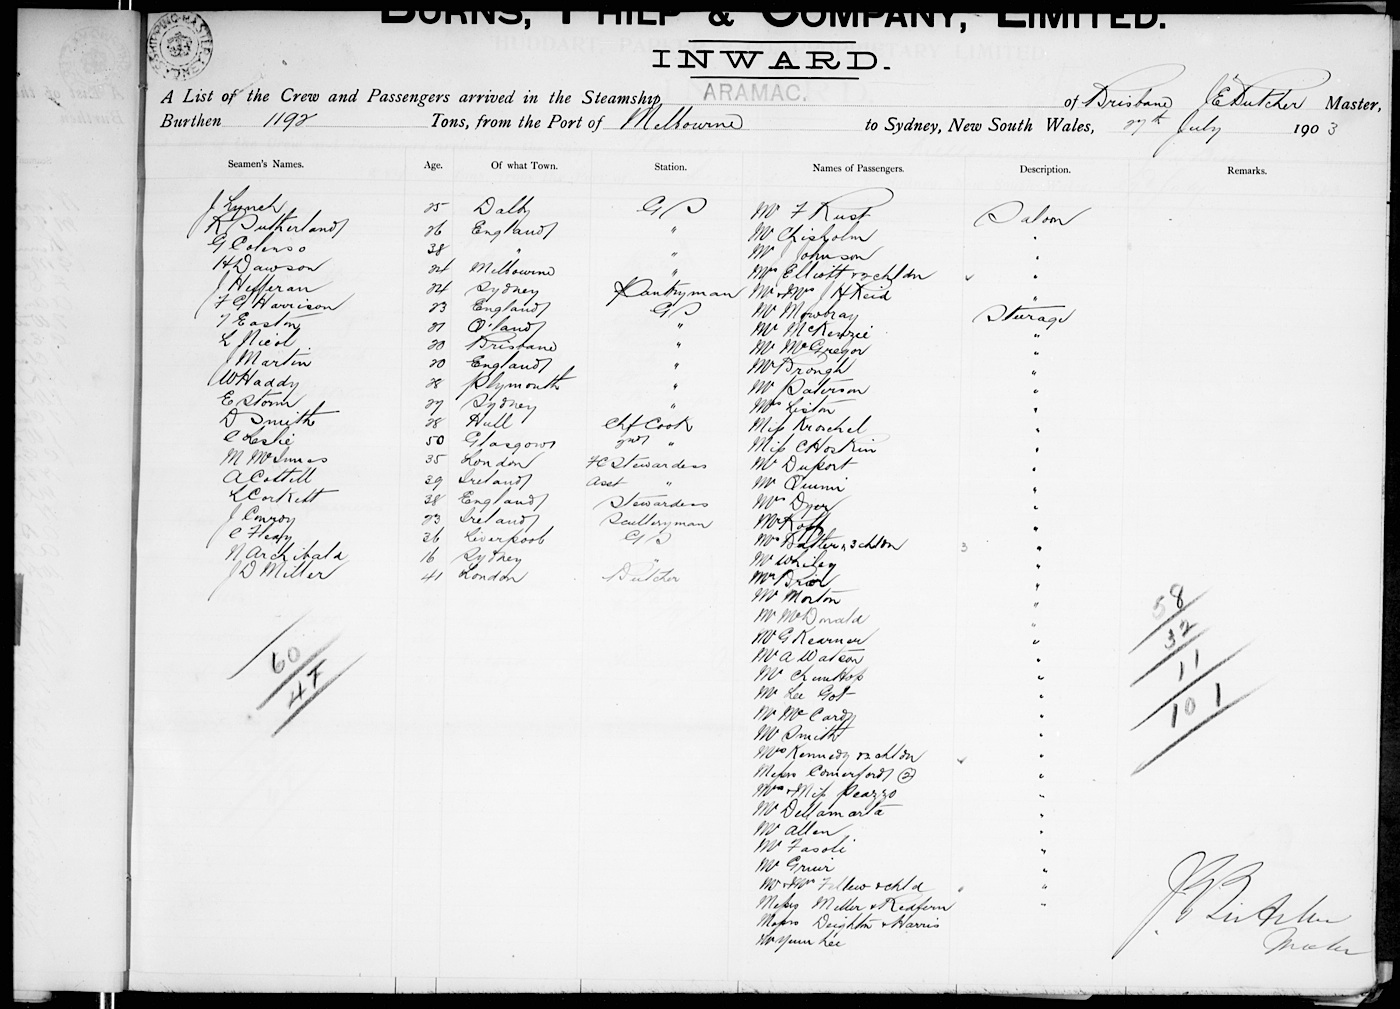 BURNS, PHILP & COMPANY, LIMITED.
INWARD.
A List of the Crew and Passengers arrived in the Steamship ARAMAC. of Brisbane J E Butcher Master,
Burthen 1192 Tons, from the Port of Melbourne to Sydney, New South Wales, 27th July 1903
Seamen's Names. Age. Of what Town. Station. Names of Passengers. Description. Remarks.
J Lynch 25 Dalby G S Mr F Rust Saloon
K Sutherland 26 England " Mr Chisholm "
G Colenso 38 " " Mr J Johnson "
H Dawson 24 Melbourne " Mrs Elliott & 2 chldn "
J Hefferan 24 Sydney Pantryman Mr & Mrs J H Reid "
F G Harrison 23 England G S Mr Mowbray Steerage
T Easton 21 Q'land " Mr McKenzie "
L Nicol 20 Brisbane " Mr McGregor "
J Martin 20 England " Mr Brough "
W Haddy 28 Plymouth " Mr Paterson "
E Storm 27 Sydney " Mrs Liston "
D Smith 28 Hull Chf Cook Miss Kroschel "
C Leslie 50 Glasgow 2nd " Miss C Hoskin "
M McInnes 35 London F C Stewardess Mr Duport "
A Cottell 39 Ireland Asst " Mr Quinn "
L Corkett 38 England Stewardess Mrs Dyer "
J Conroy 23 Ireland Sculleryman Mr Koff "
C Fleay 36 Liverpool G S Mrs Salter & 3 chldn 3 "
N Archibald 16 Sydney " Mr Wriley "
J D Miller 41 London Butcher Mr Brior "
Mr Morton "
Mr McDonald "
Mr G Kearner "
Mr A Watson "
Mr Chun Hop "
Mr Lee Got "
Mr McCardy "
Mr Smith "
Mrs Kennedy & 2 chldn "
Messrs Comerford (2) "
Mrs & Miss Peazzo "
Mr Dellamarta "
Mr Allen "
Mr Fasoli "
Mr Grieir "
Mr & Mrs Fellew & chld "
Messrs Miller & Redfern "
Messrs Deighton & Harris
Mr Yuen Lee
60
47
58
32
11
101
J E Butcher
Master